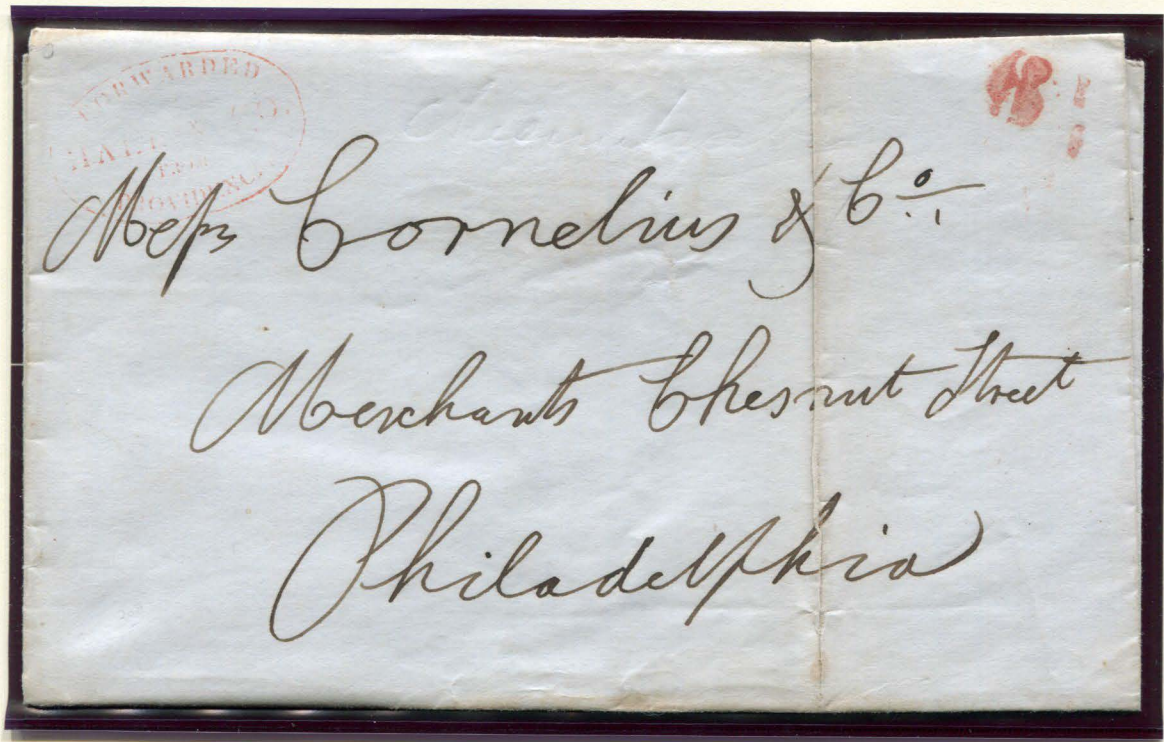 FORWARDED
HALE & CO.
FROM
PROVIDENCE
Messrs Cornelius & Co.
Merchants Chesnut Street
Philadelphia